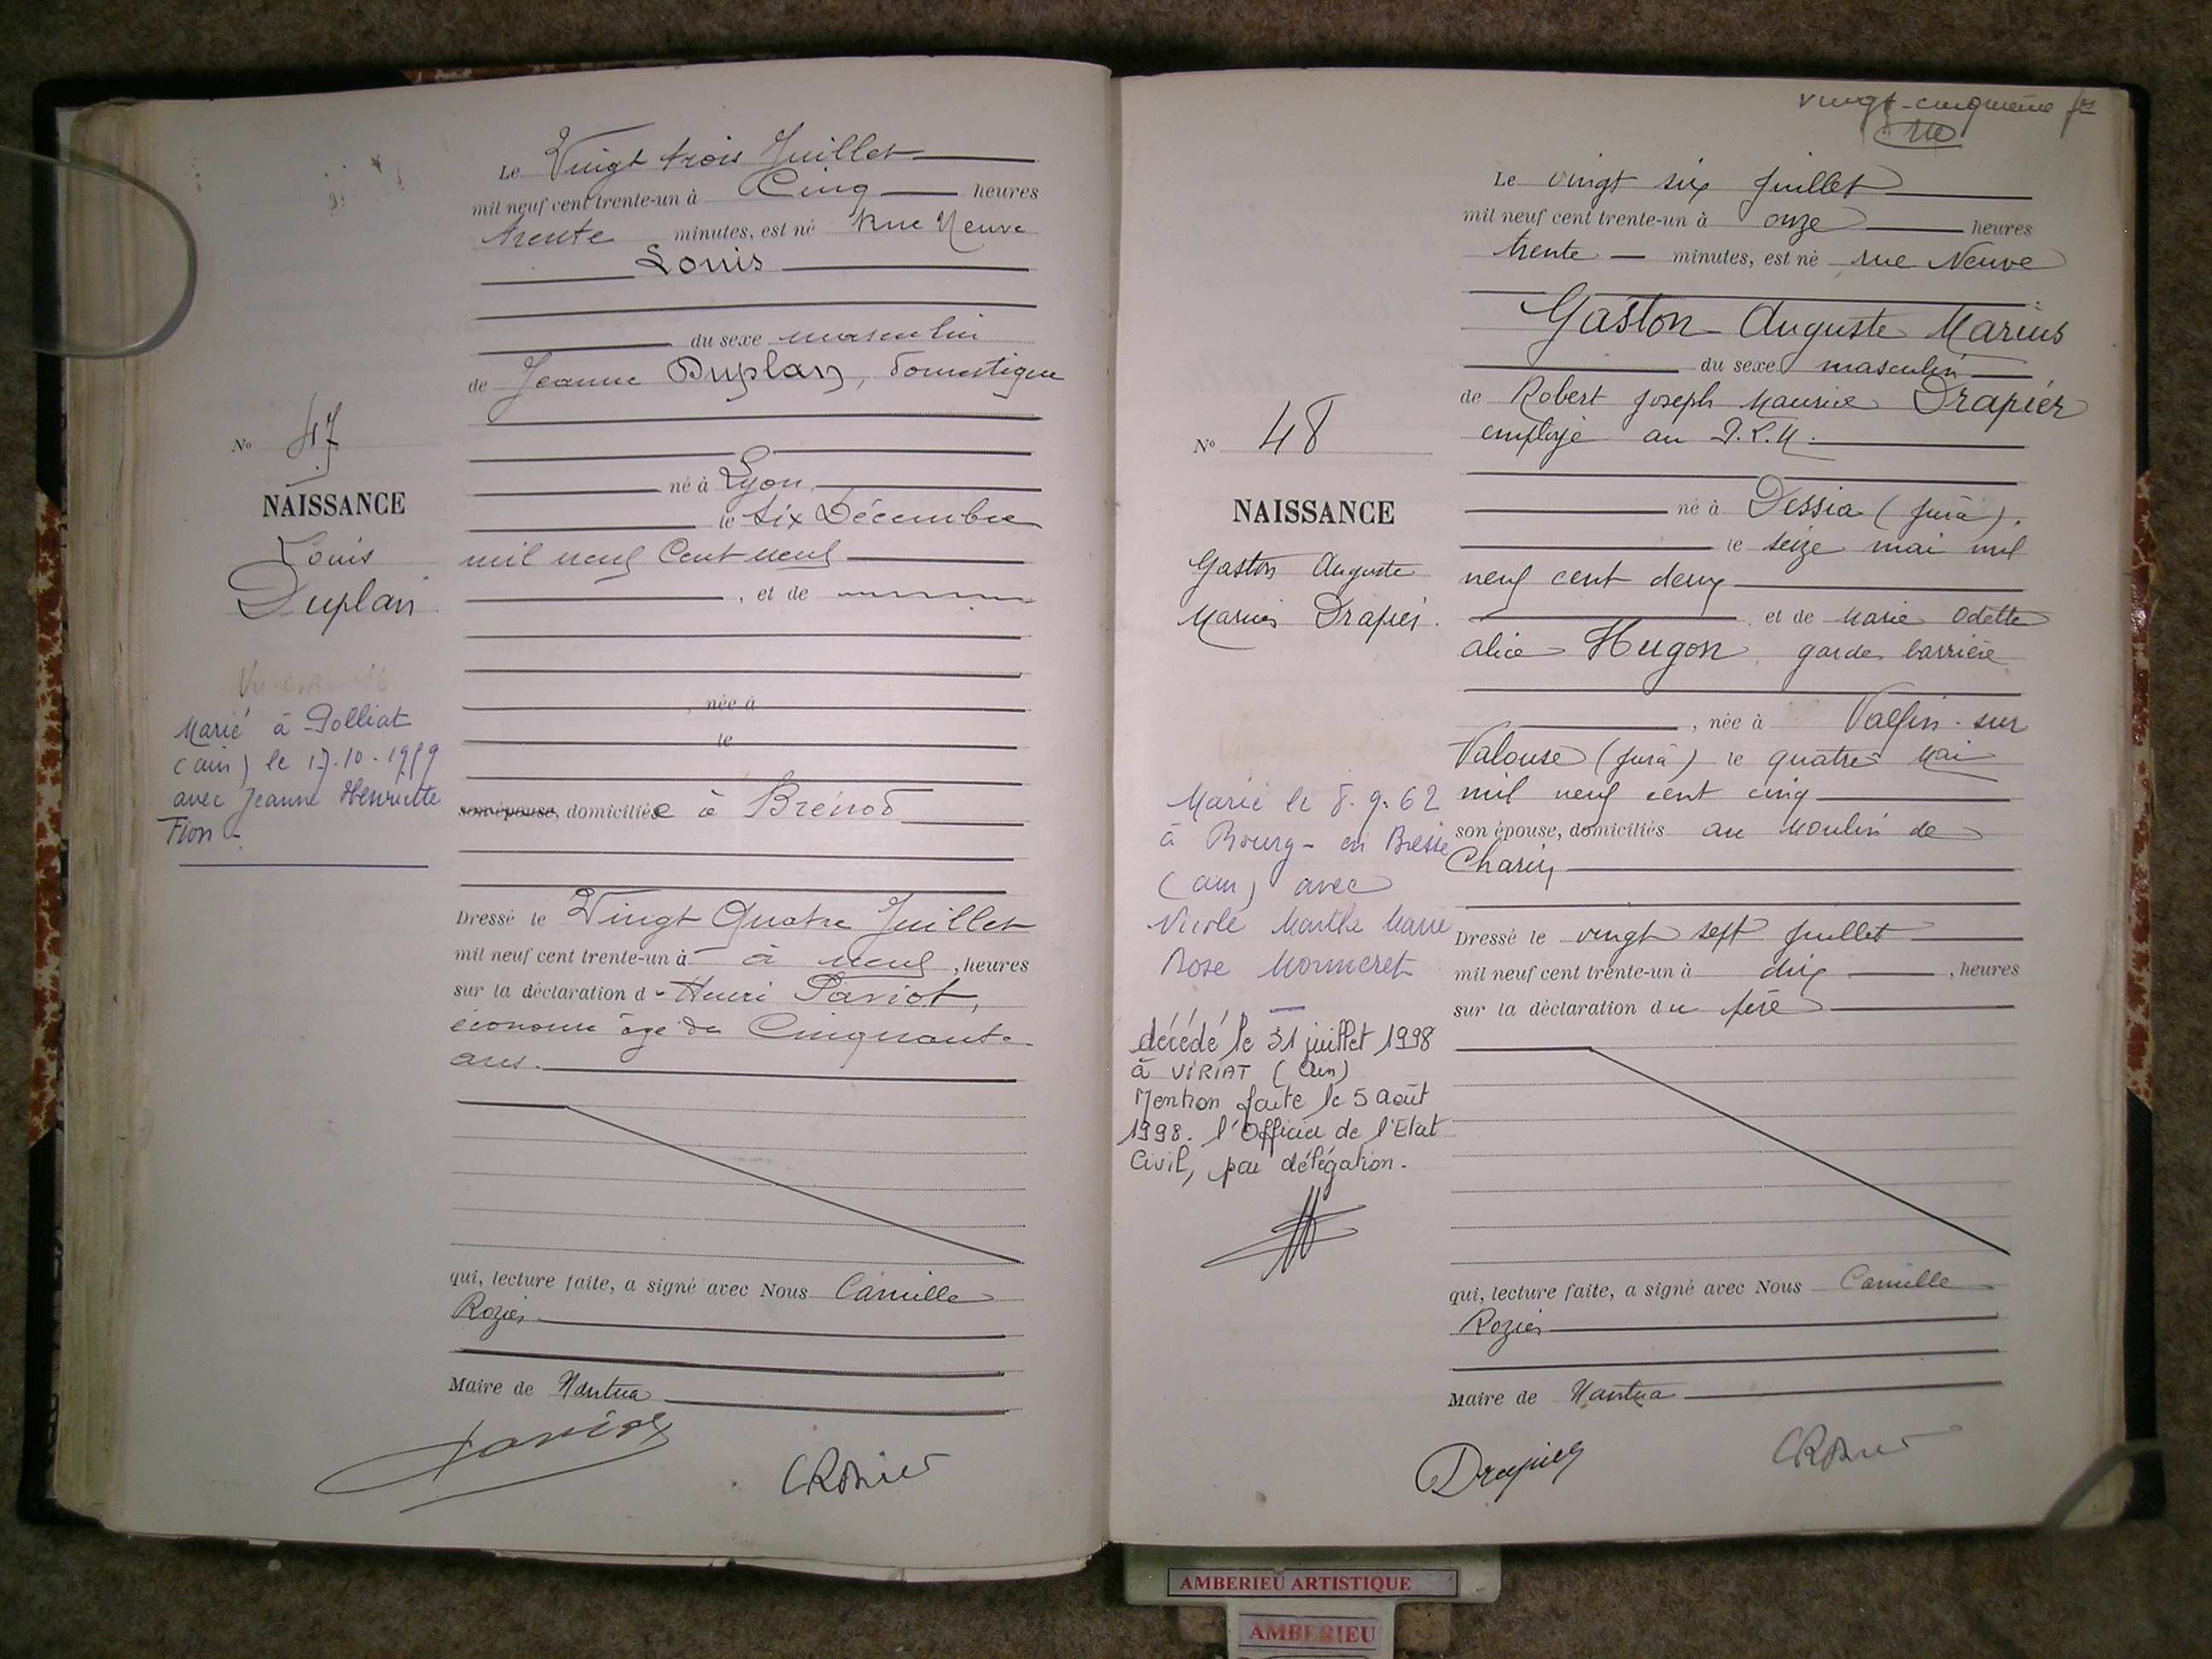 Le Vingt trois Juillet
mil neuf cent trente-un à Cinq heures
trente minutes, est né Rue Neuve
Louis
du sexe masculin
de Jeanne Duplan, domestique
né à Lyon
le six Décembre
mil neuf Cent neuf
, et de
, née à
le
son épouse, domiciliée à Brénod
Dressé le Vingt Quatre Juillet
mil neuf cent trente-un à à neuf , heures
sur la déclaration d Henri Paviot,
économe âgé de Cinquante
ans.
qui, lecture faite, a signé avec Nous Camille
Rozier
Maire de Nantua
No 47
NAISSANCE
Louis
Duplan
Marié à Polliat
(ain) le 17.10.1959
avec Jeanne Henriette
Fion
Paviot
CRozier
vingt-cinquième
Le vingt six juillet
mil neuf cent trente-un à onze heures
trente minutes, est né rue Neuve
Gaston Auguste Marius
du sexe masculin
de Robert Joseph Maurice Drapier
employé au P.L.M.
né à Dessia (Jura).
le seize mai mil
neuf cent deux
et de Marie Odette
Alice Hugon, garde barrière
, née à Valfin-sur
Valouse (Jura) le quatre Mai
mil neuf cent cinq
son épouse, domiciliés au Moulin de
Charix
Dressé le vingt sept juillet
mil neuf cent trente-un à dix , heures
sur la déclaration du père
qui, lecture faite, a signé avec Nous Camille
Rozier
Maire de Nantua
No 48
NAISSANCE
Gaston Auguste
Marius Drapier.
Marié le 8.9.62
à Bourg-en Bresse
(ain) avec
Nicole Marthe Marie
Rose Monneret
décédé le 31 juillet 1998
à VIRIAT (Ain)
Mention faite le 5 Août
1998. l'Officier de l'Etat
Civil, par délégation.
Drapier
CRozier
AMBERIEU ARTISTIQUE
AMBERIEU